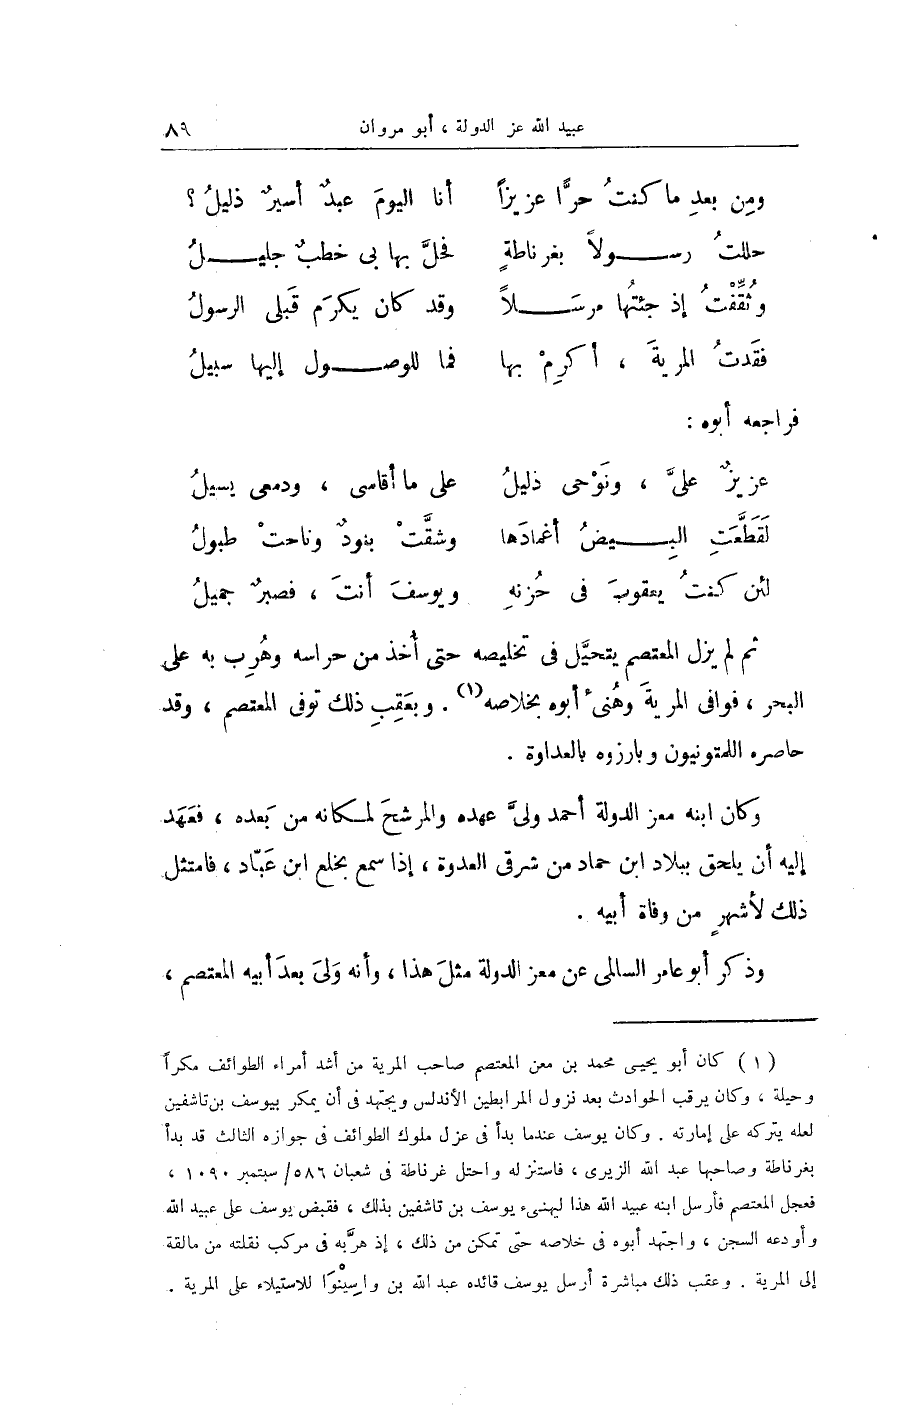 عبيد الله عز الدولة ، أبو مروان ٨٩
ومِن بعدِ ما كنتُ حرًّا عزيزاً أنا اليومَ عبدٌ أسيرٌ ذليلُ ؟
حللتُ رسولاً بغرناطةٍ فحلَّ بها بى خطبٌ جليلُ
وثُقِّفْتُ إذ جئتُها مرسَلاً وقد كان يكرَم قَبلى الرسولُ
فقَدتُ المريةَ ، أكرِمْ بها فما للوصول إليها سبيلُ
فراجعه أبوه :
عزيزٌ علىَّ ، ونَوْحى ذليلُ على ما أقاسى ، ودمعى يسيلُ
لَقَطَّعَتِ البِيضُ أغمادَها وشقَّتْ بنودٌ وناحتْ طبولُ
لئن كنتُ يعقوبَ فى حُزنهِ ويوسفَ أنتَ ، فصبرٌ جميلُ
ثم لم يزل المعتصم يتحيَّل فى تخليصه حتى أُخذ من حراسه وهُرِب به على
البحر ، فوافى المريةَ وهُنىء أبوه بخلاصه(١) . وبعَقِبِ ذلك توفى المعتصم ، وقد
حاصره اللمتونيون وبارزوه بالعداوة .
وكان ابنه معز الدولة أحمد ولىَّ عهده والمرشحَ لمكانه من بَعده ، فعَهَد
إليه أن يلحق ببلاد ابن حماد من شرقى العدوة ، إذا سمع بخلع ابن عَبّاد ، فامتثل
ذلك لأشهرٍ من وفاة أبيه .
وذكر أبو عامر السالمى عن معز الدولة مثلَ هذا ، وأنه وَلىَ بعدَ أبيه المعتصم ،
(١) كان أبو يحيى محمد بن معن المعتصم صاحب المرية من أشد أمراء الطوائف مكراً
وحيلة ، وكان يرقب الحوادث بعد نزول المرابطين الأندلس ويجتهد فى أن يمكر بيوسف بن تاشفين
لعله يتركه على إمارته . وكان يوسف عندما بدأ فى عزل ملوك الطوائف فى جوازه الثالث قد بدأ
بغرناطة وصاحبها عبد الله الزيرى ، فاستنزله واحتل غرناطة فى شعبان ٥٨٦/ سبتمبر ١٠٩٠ ،
فعجل المعتصم فأرسل ابنه عبيد الله هذا ليهنىء يوسف بن تاشفين بذلك ، فقبض يوسف على عبيد الله
وأودعه السجن ، واجتهد أبوه فى خلاصه حتى تمكن من ذلك ، إذ هرَّبه فى مركب نقلته من مالقة
إلى المرية . وعقب ذلك مباشرة أرسل يوسف قائده عبد الله بن واسِينُوا للاستيلاء على المرية .